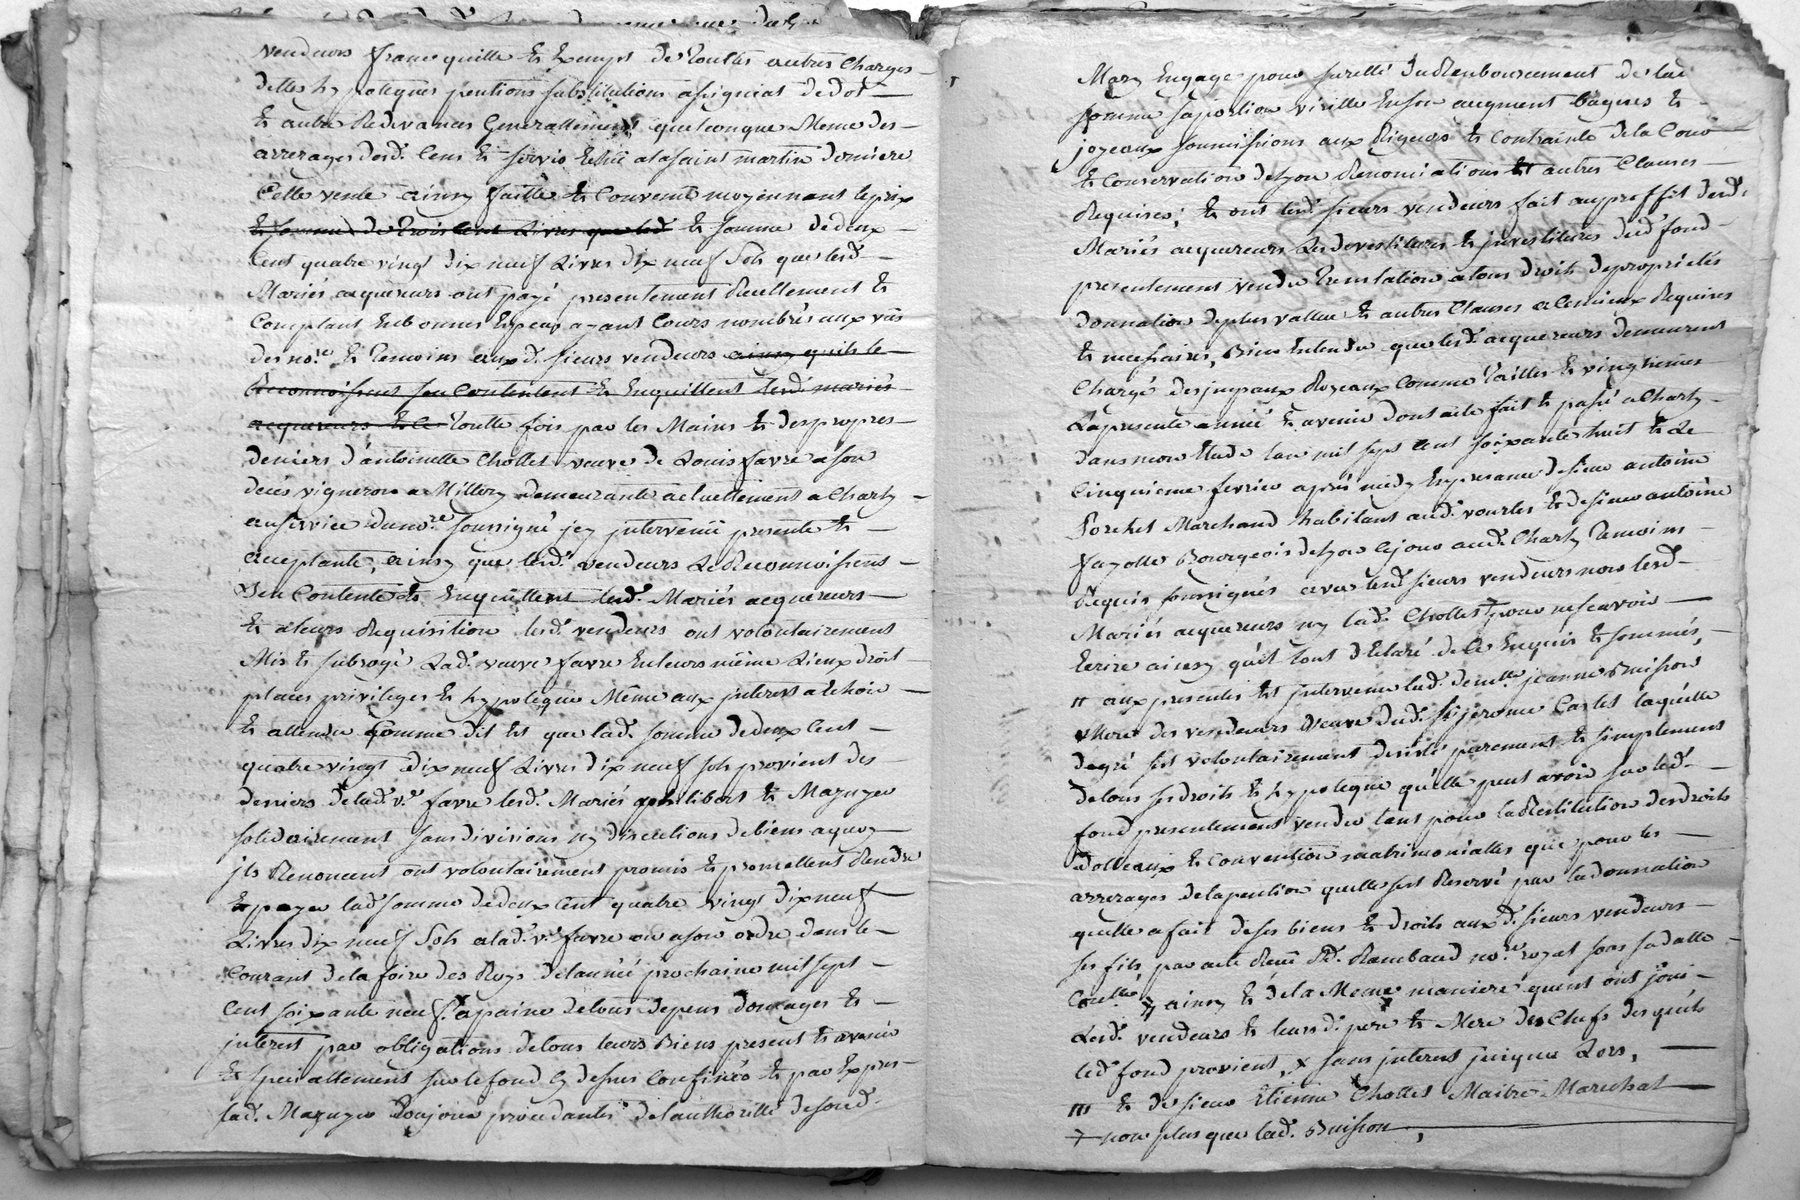 vendeurs franc quitte et exempt de touttes autres charges
dettes hypoteques pentions substitutions assigniat de dot
et autre Redevances Generallement quelconque Meme des
arrerages desd. Cens et servis echu a la saint martin derniere
Cette vente ainsy faitte et Convenue moyennant le prix
et somme de trois cent Livres que led. et somme de deux
Cent quatre vingt dix neuf Livres dix neuf Sols que lesd.
Mariés acquereurs ont payé presentement Reellement et
Comptant en bonnes Especes ayant Cours nombrés aux vües
des no.re et Temoins auxd. sieurs vendeurs ainsy qu'ils le
Reconnoissent s'en Contentent et Enquittent lesd. mariés
acquereurs et ce toutte fois par les Mains et des propres
deniers d'antoinette Chollet veuve de Louis favre a son
deces vigneron a Millery demeurante actuellement a Charly
au service dud no.re soussigné jcy jntervenüe presente et
acceptante, ainsy que lesd. vendeurs Le Reconnoissent
s'en Contente et Enquittent lesd. Mariés acquereurs
et a leurs Requisition lesd. vendeurs ont volontairement
Mis et subrogé Lad. veuve favre En leurs même Lieux droit
places privileges et hypoteque Même aux jnterest a echoir
et attendu Comme dit est que lad. somme de deux Cent
quatre vingt dix neuf Livres dix neuf sols provient des
deniers de lad. v.e favre lesd. Mariés philibert et Mazuyer
solidairement sans divisions ny discutions de biens a quoy
jls Renoncent ont volontairement promis et promettent Rendre
et payer lad somme de deux Cent quatre vingt dix neuf
Livres dix neuf Sols a lad. v.e favre ou a son ordre dans le
Courant de la foire des Roys de l'année prochaine mil sept
Cent soixante neuf x a paine de tous depens domages et
jnterest par obligations de tous leurs Biens present et avenir
et specialement sur le fond Cy dessus Confinés et par Expres
lad. Mazuyer toujours procedante de l'authorité de sond.
Mary Engage pour suretté du Renboursement de lad
somme sa portion virille En son augment bagues et
joyeaux soumissions aux Rigueurs et Contrainte de la Cour
et Conservation de Lyon Renonciations et autres Clauses
Requises; et ont lesd. sieurs vendeurs fait au proffit desd.
Mariés acquereurs Les devestitures et jnvestitures dud. fond
presentement vendu translation a tous droits de proprietés
donnation de plus vallue et autres Clauses a Ce mieux Requises
et necessaires, Bien Entendu que lesd. acquereurs demeurent
Chargé des jmpaux Royeaux Comme tailles et vingtiemes
La presente année et avenir dont acte fait et passé a Charly
dans mon Etude l'an mil sept Cent soixante huit et Le
Cinquieme fevrier après midy En presence de sieur antoine
Porchet Marchand habitant aud. vourles et de sieur antoine
fayolle Bourgeois de Lyon a jour aud. Charly temoins
Requis soussignés avec lesd sieurs vendeurs non lesd.
Mariés acquereurs ny lad. Chollet † pour ne sçavoir
Ecrire ainsy qu'il l'ont declaré de ce Enquis et sommés,
11 aux presentes Est jntervenue lad. demelle jeanne Buisson
Mere des vendeurs veuve dud. Sr jerome Caslet laquelle
de gré s'est volontairement desisté purement et simplement
de tous ses droits et hypoteque qu'elle peut avoir sur led.
fond presentement vendu tant pour la Restitution des droits
dotteaux et Convention matrimonialles que pour les
arrerages de la pention qu'elle s'est Reservé par la donnation
qu'elle a fait de ses biens et droits auxd. sieurs vendeurs
ses fils par acte Reçu Sd. Rambaud no.re royal sous sa datte
Controllé † ainsy et de la Meme maniere qu'ent ont joui
Lesd. vendeurs et leursd. pere et Mere des Chefs desquels
led. fond provient, x sans jnterest jusques Lors,
111 et de sieur Etienne Chollet Maitre Marechal
† non plus que lad. Buisson,